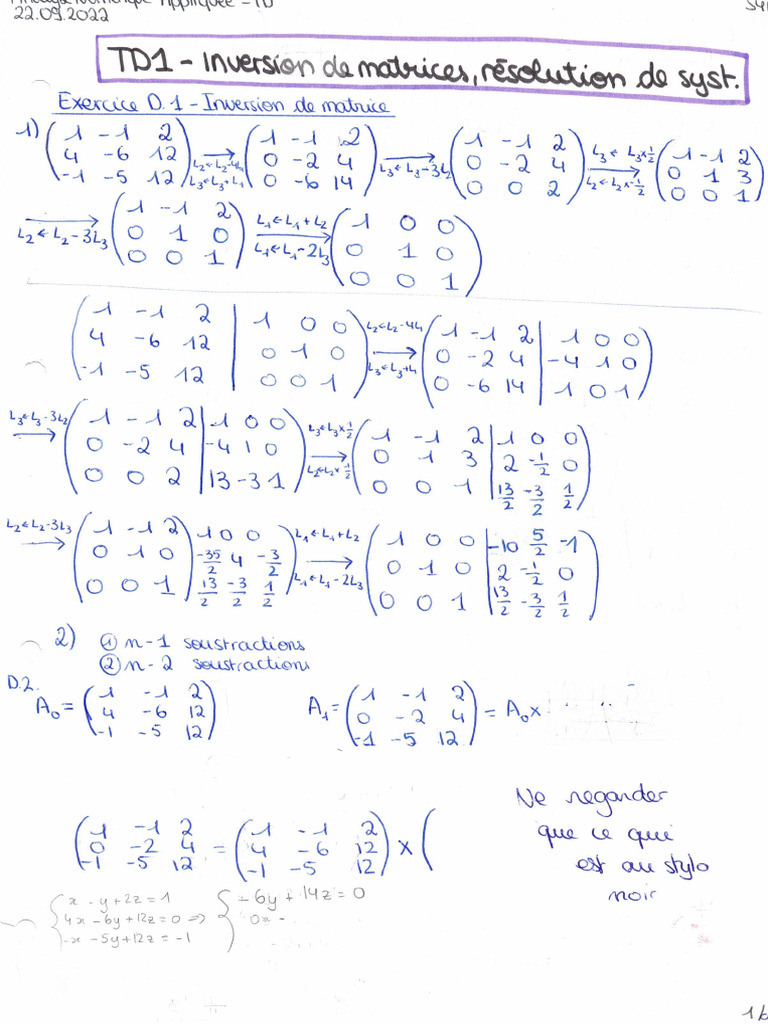 22.09.2022
TD1 - Inversion de matrices, résolution de syst.
Exercice D.1 - Inversion de matrice
1) (1 -1 2 ; 4 -6 12 ; -1 -5 12) → L₂←L₂-4L₁ L₃←L₃+L₁ (1 -1 2 ; 0 -2 4 ; 0 -6 14) → L₃←L₃-3L₂ (1 -1 2 ; 0 -2 4 ; 0 0 2) → L₃←L₃×1/2 L₂←L₂×-1/2 (1 -1 2 ; 0 1 3 ; 0 0 1)
→ L₂←L₂-3L₃ (1 -1 2 ; 0 1 0 ; 0 0 1) → L₁←L₁+L₂ L₁←L₁-2L₃ (1 0 0 ; 0 1 0 ; 0 0 1)
(1 -1 2 | 1 0 0 ; 4 -6 12 | 0 1 0 ; -1 -5 12 | 0 0 1) → L₂←L₂-4L₁ L₃←L₃+L₁ (1 -1 2 | 1 0 0 ; 0 -2 4 | -4 1 0 ; 0 -6 14 | 1 0 1)
L₃←L₃-3L₂ → (1 -1 2 | 1 0 0 ; 0 -2 4 | -4 1 0 ; 0 0 2 | 13 -3 1) → L₃←L₃×1/2 L₂←L₂×-1/2 (1 -1 2 | 1 0 0 ; 0 1 3 | 2 -1/2 0 ; 0 0 1 | 13/2 -3/2 1/2)
L₂←L₂-3L₃ → (1 -1 2 | 1 0 0 ; 0 1 0 | -35/2 4 -3/2 ; 0 0 1 | 13/2 -3/2 1/2) → L₁←L₁+L₂ L₁←L₁-2L₃ (1 0 0 | -10 5/2 -1 ; 0 1 0 | 2 -1/2 0 ; 0 0 1 | 13/2 -3/2 1/2)
2) ① n-1 soustractions
② n-2 soustractions
D.2.
A₀ = (1 -1 2 ; 4 -6 12 ; -1 -5 12) A₁ = (1 -1 2 ; 0 -2 4 ; -1 -5 12) = A₀×
(1 -1 2 ; 0 -2 4 ; -1 -5 12) = (1 -1 2 ; 4 -6 12 ; -1 -5 12) × (
Ne regarder
que ce qui
est au stylo
noir
{ x - y + 2z = 1 ; 4x - 6y + 12z = 0 ; -x - 5y + 12z = -1 ⇒ { -6y + 14z = 0 ; 0x -